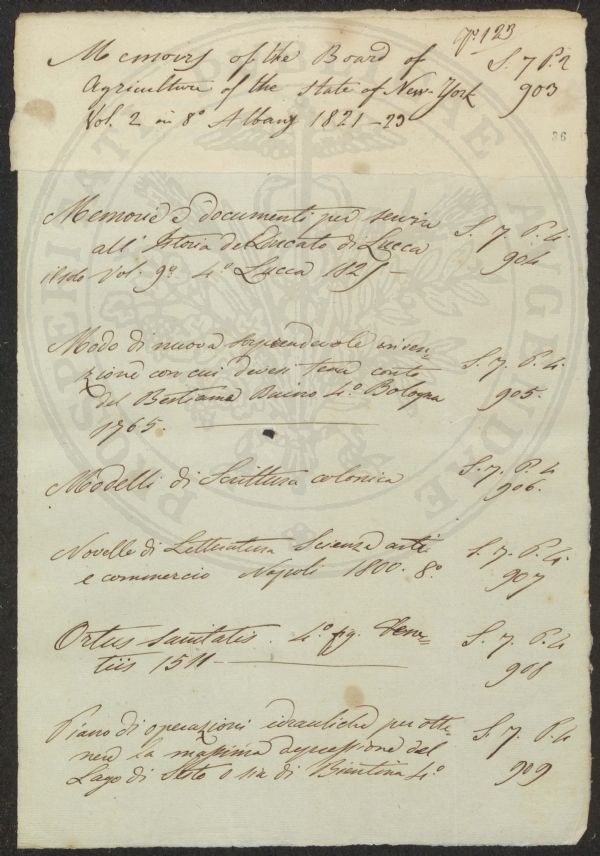 No 123
Memoirs of the Board of S. 7 P. 2
Agriculture of the State of New-York 903
Vol. 2 in 8° Albany 1821-23
36
Memorie e documenti per servire S. 7 P. 4.
all'Istoria del Ducato di Lucca 904
Vol. 9° 4° Lucca 1825 -
Modo di nuova sorprendevole inven=
zione con cui devesi tener conto S. 7. P. 4.
del Bestiame 4° Bologna 905.
1765.
Modelli di Scrittura colonica S. 7. P. 4
906.
Novelle di Letteratura Scienze arti S. 7. P. 4.
e commercio Napoli 1800. 8° 907
Ortus sanitatis. 4° fig. Vene= S. 7. P. 4
tiis 1511 908
Piano di operazioni idrauliche per otte=
nere la massima depressione del S. 7. P. 4
Lago di Sesto o sia di Bientina 4° 909
PROSPERITATI PUBLICAE AUGENDAE